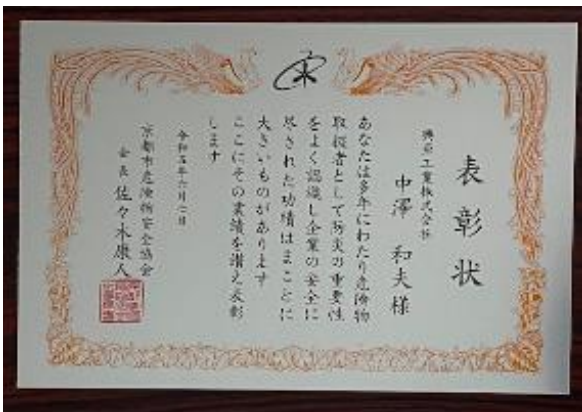 表彰状
工業株式会社
中澤 和夫様
あなたは多年にわたり危険物
取扱者として防災の重要性
をよく認識し企業の安全に
尽された功績はまことに
大きいものがあります
ここにその業績を讃え表彰
します
令和五年六月二日
京都市危険物安全協会
会長 佐々木康人